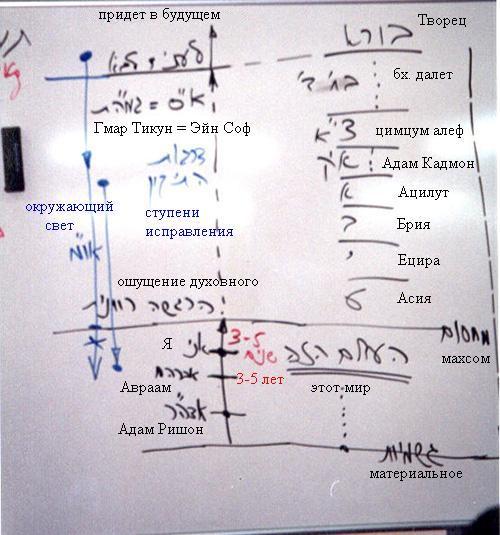 придет в будущем
Творец
בורא
לעתיד לבוא
בח' ד'
бх. далет
א"ס = גמה"ת
Гмар Тикун = Эйн Соф
צ"א
цимцум алеф
א"ק
Адам Кадмон
דרגות
התיקון
ступени
исправления
א
Ацилут
окружающий
свет
או"מ
ב
Брия
י
Ецира
ощущение духовного
הרגשה רוחנית
ע
Асия
מחסום
махсом
Я
אני
3-5
שנים
העולם הזה
3-5 лет
этот мир
Авраам
אברהם
Адам Ришон
אדה"ר
גשמיות
материальное